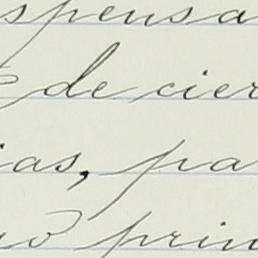 spensa
de cier
ias, pa
prin